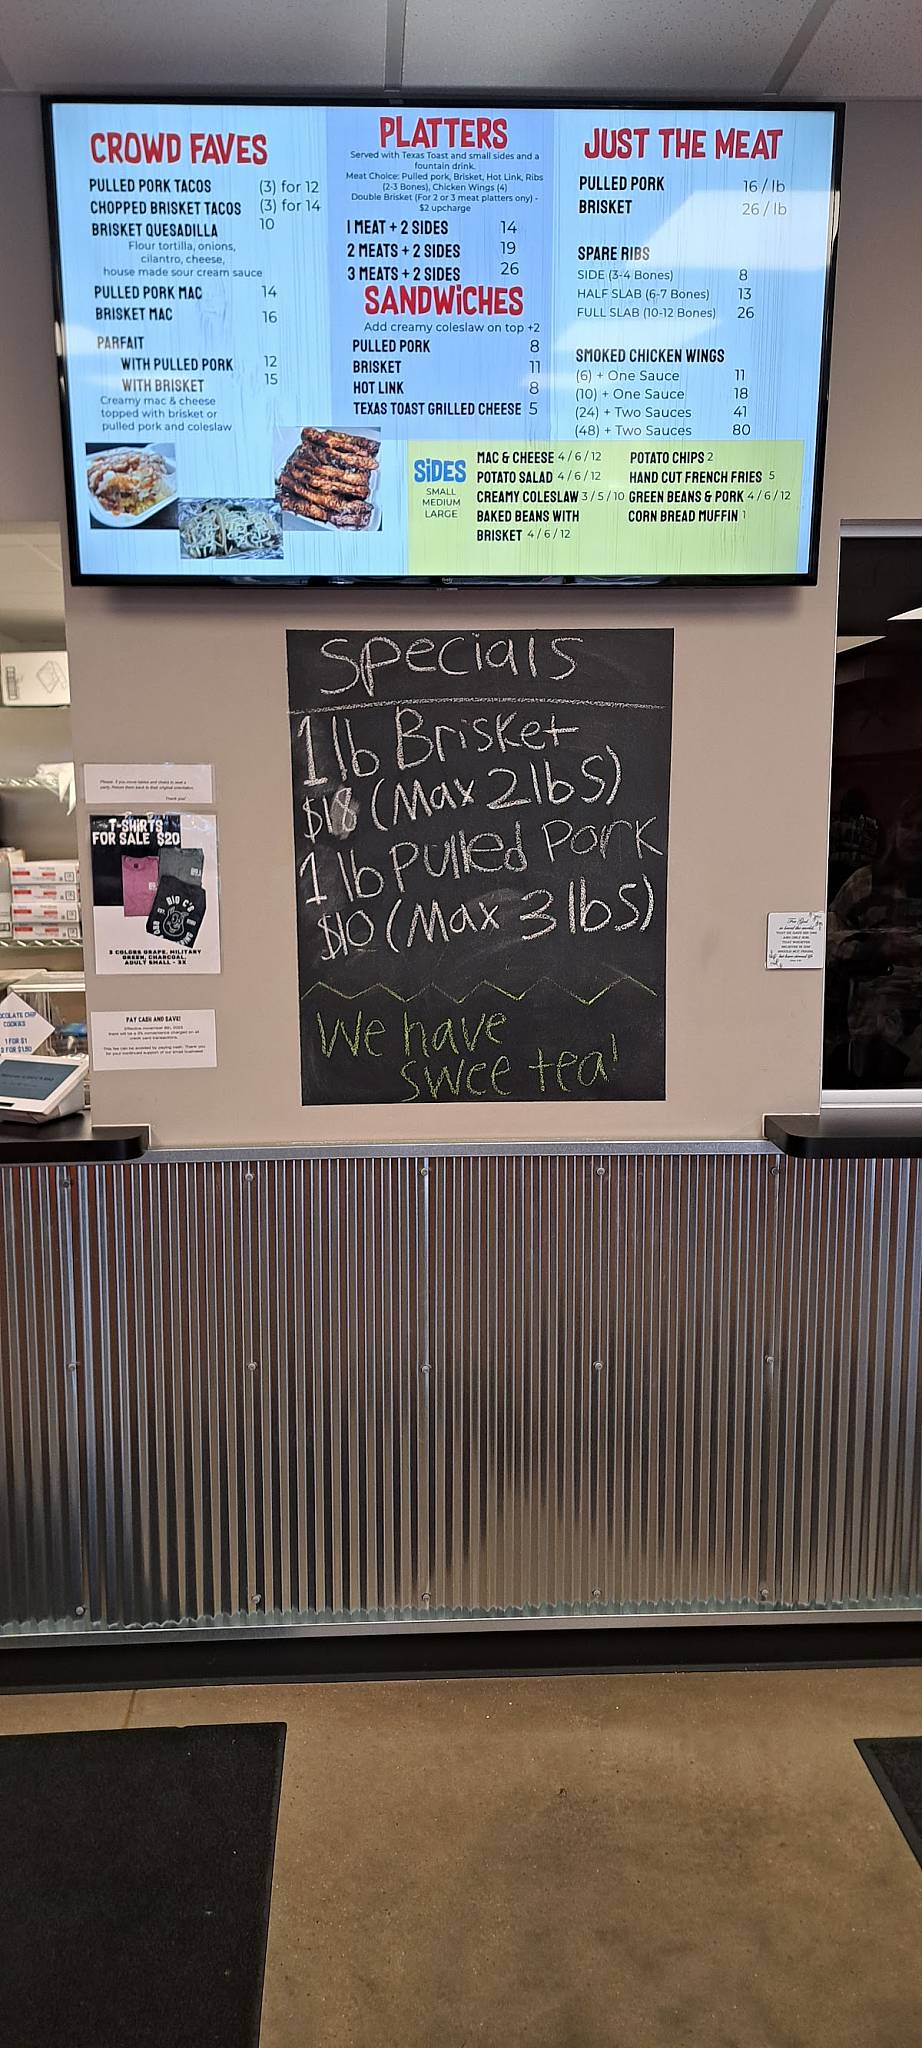 CROWD FAVES
PULLED PORK TACOS (3) for 12
CHOPPED BRISKET TACOS (3) for 14
BRISKET QUESADILLA 10
Flour tortilla, onions,
cilantro, cheese,
house made sour cream sauce
PULLED PORK MAC 14
BRISKET MAC 16
PARFAIT
WITH PULLED PORK 12
WITH BRISKET 15
Creamy mac & cheese
topped with brisket or
pulled pork and coleslaw
PLATTERS
Served with Texas Toast and small sides and a
fountain drink.
Meat Choice: Pulled pork, Brisket, Hot Link, Ribs
(2-3 Bones), Chicken Wings (4)
Double Brisket (For 2 or 3 meat platters only) -
$2 upcharge
1 MEAT + 2 SIDES 14
2 MEATS + 2 SIDES 19
3 MEATS + 2 SIDES 26
SANDWiCHES
Add creamy coleslaw on top +2
PULLED PORK 8
BRISKET 11
HOT LINK 8
TEXAS TOAST GRILLED CHEESE 5
JUST THE MEAT
PULLED PORK 16 / lb
BRISKET 26 / lb
SPARE RIBS
SIDE (3-4 Bones) 8
HALF SLAB (6-7 Bones) 13
FULL SLAB (10-12 Bones) 26
SMOKED CHICKEN WINGS
(6) + One Sauce 11
(10) + One Sauce 18
(24) + Two Sauces 41
(48) + Two Sauces 80
SiDES
SMALL
MEDIUM
LARGE
MAC & CHEESE 4 / 6 / 12
POTATO SALAD 4 / 6 / 12
CREAMY COLESLAW 3 / 5 / 10
BAKED BEANS WITH
BRISKET 4 / 6 / 12
POTATO CHIPS 2
HAND CUT FRENCH FRIES 5
GREEN BEANS & PORK 4 / 6 / 12
CORN BREAD MUFFIN 1
Specials
1 lb Brisket
$18 (Max 2lbs)
1 lb Pulled Pork
$10 (Max 3lbs)
We have
swee tea!
Please, if you move tables and chairs to seat a
party, Return them back to their original orientation.
Thank you!
T-SHiRTS
FOR SALE $20
BIG C'S
BBQ
3 COLORS GRAPE, MILITARY
GREEN, CHARCOAL,
ADULT SMALL - 3X
PAY CASH AND SAVE!
Effective november 8th, 2023
there will be a 3% convenience charged on all
credit card transactions.
This fee can be avoided by paying cash. Thank you
for your continued support of our small business!
OCOLATE CHIP
COOKIES
1 FOR $1
2 FOR $1.50
For God
so loved the world,